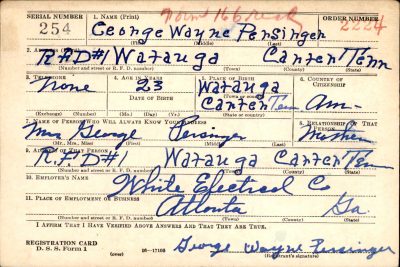 SERIAL NUMBER 1. NAME (Print) ORDER NUMBER
254 George Wayne Persinger 2224
(First) (Middle) (Last)
R.F.D #1 Watauga Carter Tenn
(Number and street or R. F. D. number) (Town) (County) (State)
3. TELEPHONE 4. AGE IN YEARS 5. PLACE OF BIRTH 6. COUNTRY OF CITIZENSHIP
None 23 Watauga
DATE OF BIRTH
Carter Tenn Am-
(Exchange) (Number) (Mo.) (Day) (Yr.) (State or country)
7. NAME OF PERSON WHO WILL ALWAYS KNOW YOUR ADDRESS 8. RELATIONSHIP OF THAT PERSON
Mrs George Persinger Mother
(Mr., Mrs., Miss) (First) (Middle) (Last)
9. ADDRESS OF THAT PERSON
R.F.D #1 Watauga Carter Tenn
(Number and street or R. F. D. number) (Town) (County) (State)
10. EMPLOYER'S NAME
White Electrical Co
11. PLACE OF EMPLOYMENT OR BUSINESS
Atlanta Ga.
(Number and street or R. F. D. number) (Town) (County) (State)
I AFFIRM THAT I HAVE VERIFIED ABOVE ANSWERS AND THAT THEY ARE TRUE.
REGISTRATION CARD
D. S. S. Form 1 (over) George Wayne Persinger
(Registrant's signature)